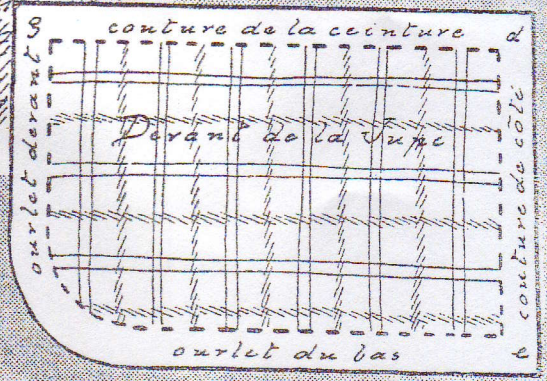 g couture de la ceinture d
ourlet devant
Devant de la Jupe
couture de côté
ourlet du bas e